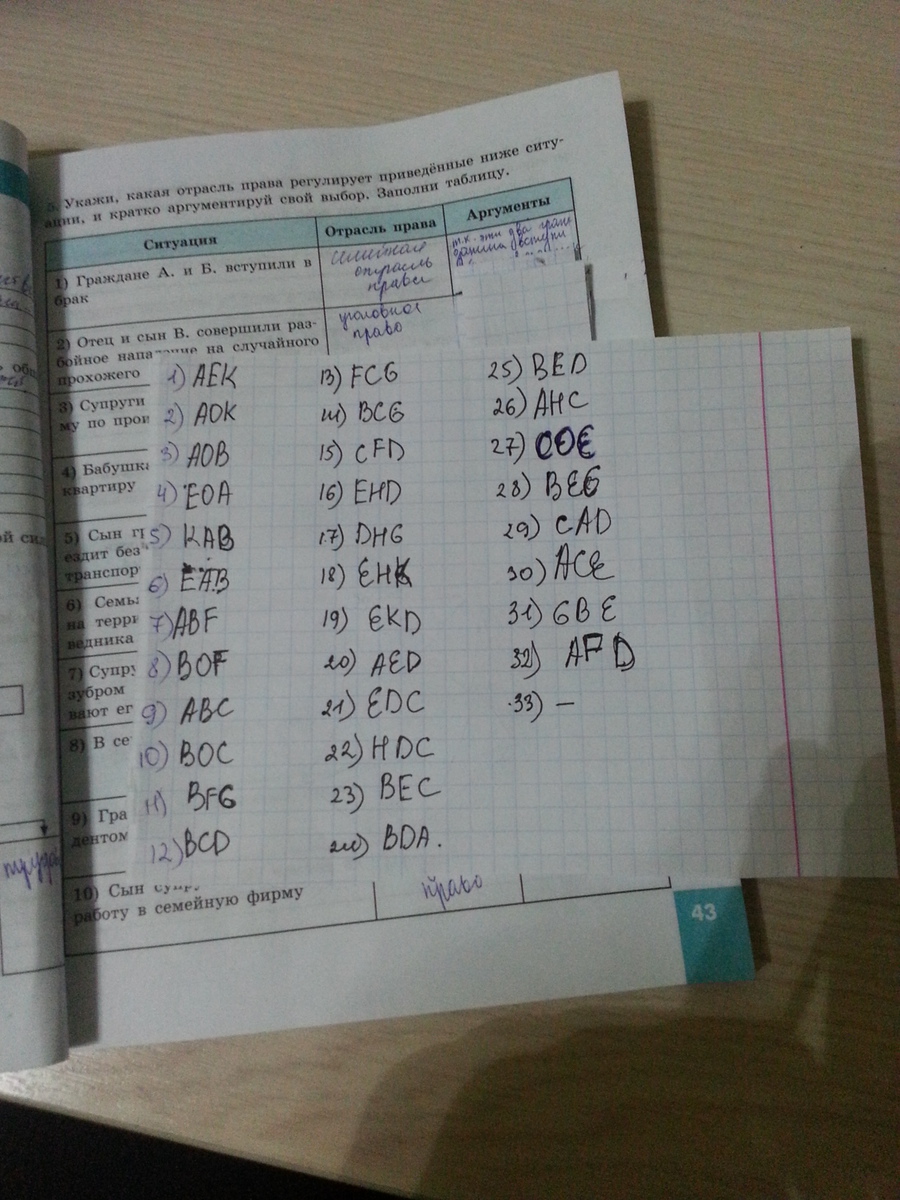 5. Укажи, какая отрасль права регулирует приведённые ниже ситу-
ации, и кратко аргументируй свой выбор. Заполни таблицу.
Ситуация
Отрасль права
Аргументы
1) Граждане А. и Б. вступили в
брак
семейная
отрасль
права
т.к. эти два граж
данина вступили
2) Отец и сын В. совершили раз-
бойное нападение на случайного
прохожего
уголовное
право
3) Супруги
му по прои
4) Бабушка
квартиру
5) Сын гр
ездит без
транспор
6) Семь
на терри
ведника
7) Супру
зубром
вают ег
8) В се
9) Гра
дентом
10) Сын
работу в семейную фирму
право
1) AEK
2) AOK
3) AOB
4) EOA
5) KAB
6) EAB
7) ABF
8) BOF
9) ABC
10) BOC
11) BFG
12) BCD
13) FCG
14) BCG
15) CFD
16) EHD
17) DHG
18) EHK
19) EKD
20) AED
21) EDC
22) HDC
23) BEC
24) BDA.
25) BED
26) AHC
27) COE
28) BEG
29) CAD
30) ACE
31) GBE
32) AFD
33) —
43